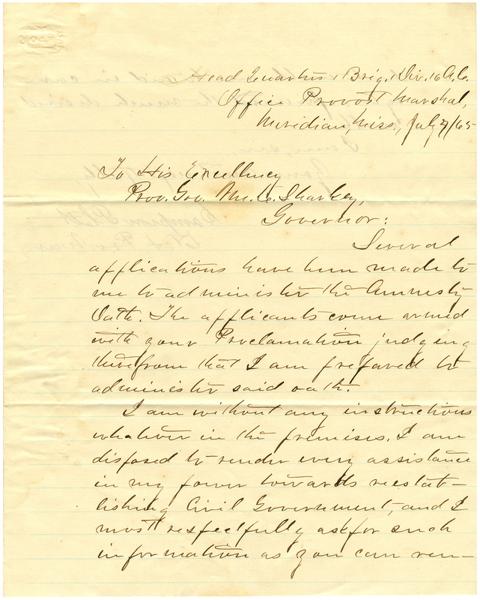 Head Quarters 1 Brig. 1 Div. 16 A.C.
Office Provost Marshal,
Meridian, Miss., July 7/65
To His Excellency
Prov. Gov. Wm. L. Sharkey,
Governor:
Several
applications have been made to
me to administer the Amnesty
Oath. The applicants come armed
with your Proclamation judging
therefrom that I am prepared to
administer said oath.
I am without any instructions
whatever in the premises. I am
disposed to render every assistance
in my power towards reestab-
lishing Civil Government, and I
most respectfully ask for such
information as you can ren-